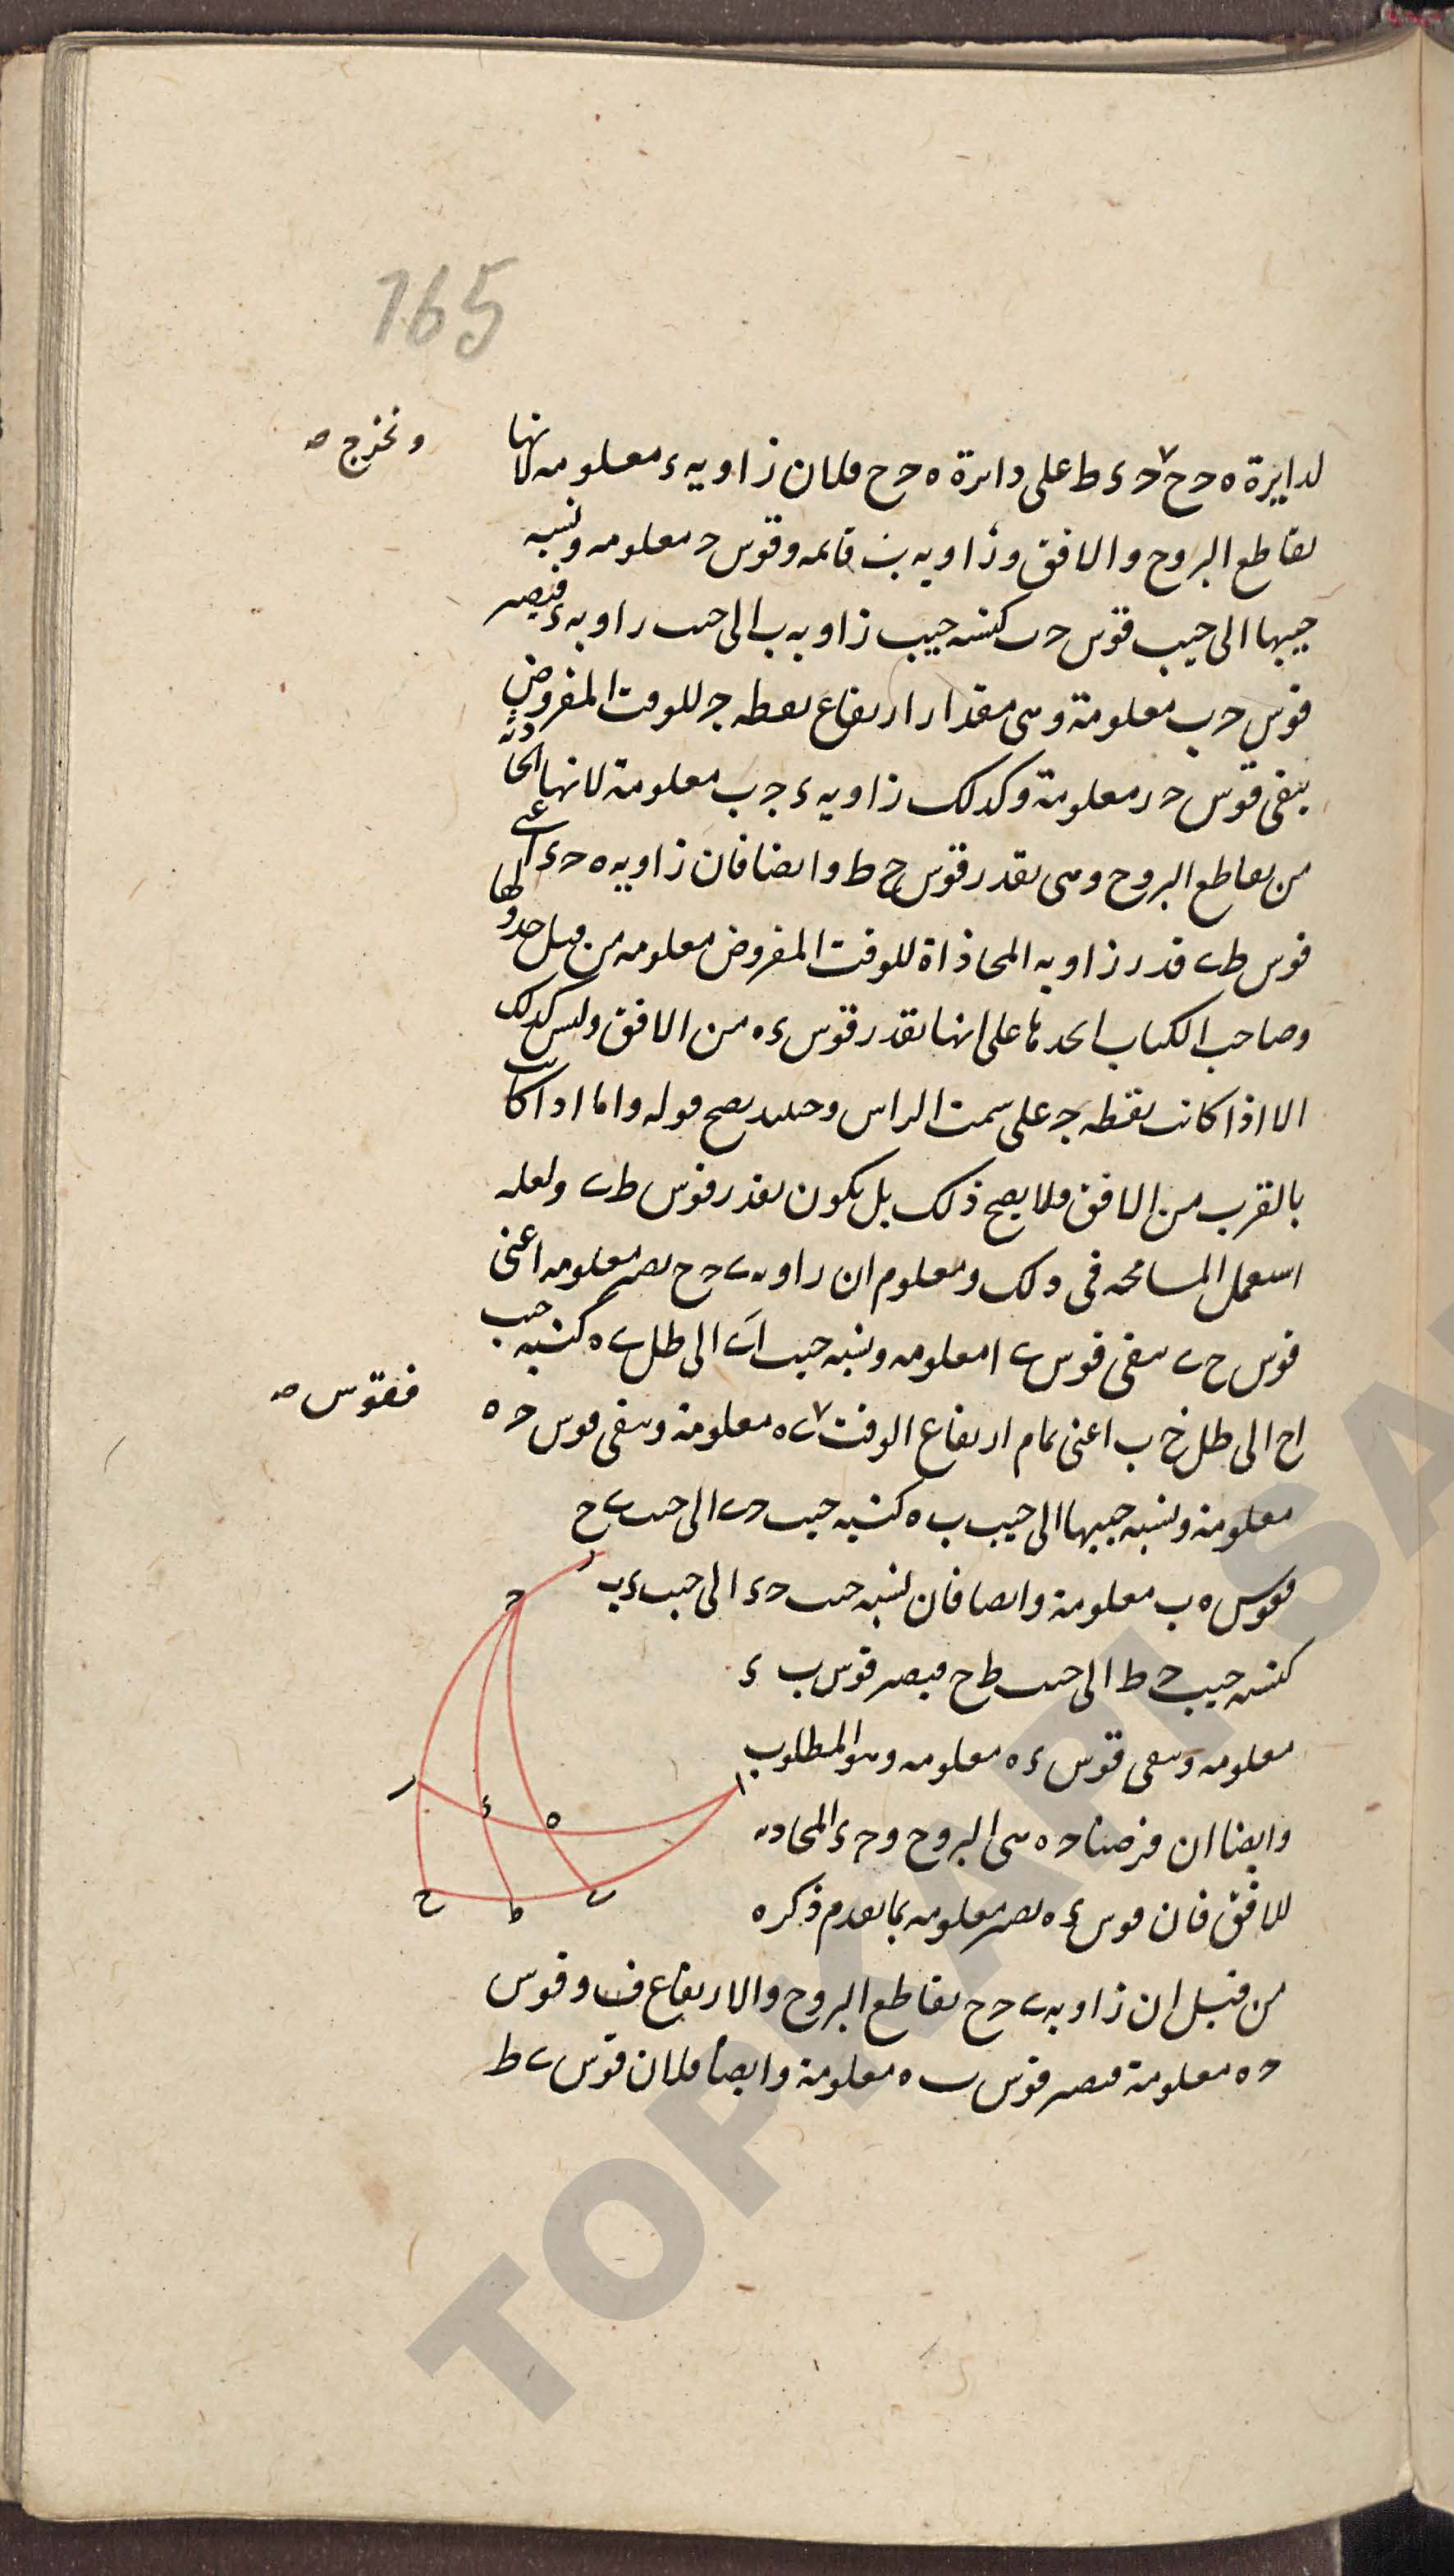 165
ونخرج صه
لدايرة ه ح ح ح ء ط على دائرة ه ح ح فلان زاويه ء معلومه لانها
تقاطع البروج والافق وزاويه ب قائمه وقوس ح معلومه ونسبه
جيبها الى جيب قوس ح ب كنسبه جيب زاويه ب الى جيب زاويه ء فيصير
قوس ح ب معلومة وهى مقدار ارتفاع نقطه ج للوقت المفروض
يبقى قوس ح ر معلومة وكذلك زاويه ء ج ب معلومة لانها الحادثه
من تقاطع البروج وهى بقدر قوس ح ط وايضا فان زاويه ه ح ء اعنى
قوس طى قدر زاويه المحاذاة للوقت المفروض معلومه من قبل جدولها
وصاحب الكتاب اخذها على انها بقدر قوس ءه من الافق وليس كذلك
الا اذا كانت نقطه ج على سمت الراس وحينئذ يصح قوله واما اذا كانت
بالقرب من الافق فلا يصح ذلك بل يكون بقدر قوس طى ولعله
استعمل المسامحه فى ذلك ومعلوم ان زاويه ى ح ح تصير معلومه اعنى
قوس ح ى يبقى قوس ى ا معلومه ونسبه جيب اى الى ظل ى ه كنسبه جيب
فقوس صه
اح الى ظل ح ب اعنى تمام ارتفاع الوقت ى ه معلومة ويبقى قوس ح ه
معلومة ونسبه جيبها الى جيب ب ه كنسبه جيب ح ى الى جيب ى ح
فقوس ه ب معلومة وايضا فان نسبه جيب ح ء الى جيب ء ب
كنسبه جيب ح ط الى جيب ط ح فيصير قوس ب ء
معلومه ويبقى قوس ءه معلومه وهو المطلوب
وايضا ان فرضنا ح ه هى البروج و ح ء المحاذيه
للافق فان قوس ءه تصير معلومه بما تقدم ذكره
من قبل ان زاويه ى ح ح تقاطع البروج والارتفاع ف وقوس
ح ه معلومة فيصير قوس ب ه معلومة وايضا فلان قوس ى ط
ر
ح
ا
ر
ء
ه
ح
ط
ى